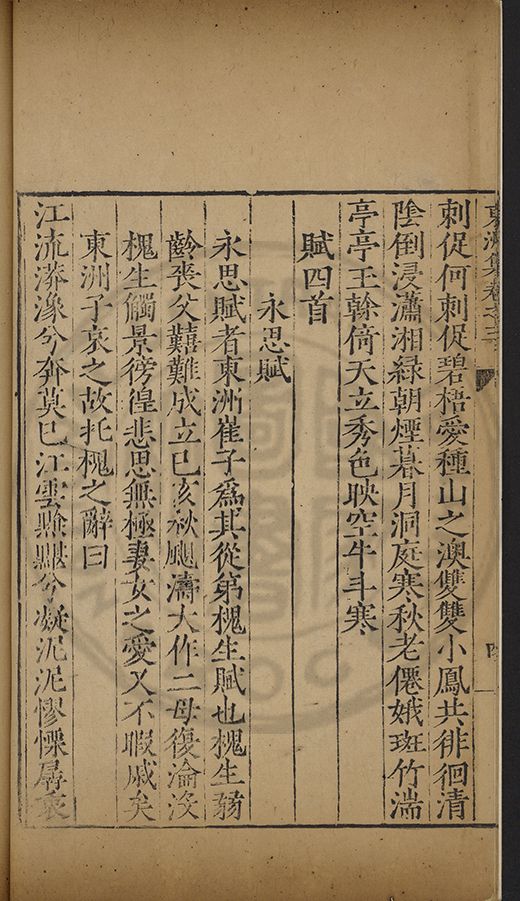 東洲集卷之二
刺促何刺促碧梧愛種山之澳雙雙小鳳共徘徊清
陰倒浸瀟湘綠朝煙暮月洞庭寒秋老僊娥斑竹湍
亭亭玉榦倚天立秀色映空牛斗寒
賦四首
永思賦
永思賦者東洲崔子爲其從第槐生賦也槐生弱
齡喪父囏難成立已亥秋颶濤大作二母復淪沒
槐生觸景徬徨悲思無極妻女之愛又不暇戚矣
東洲子哀之故托槐之辭曰
江流漭瀁兮奔莫已江雲黲黮兮凝沉沉慘慄
哀